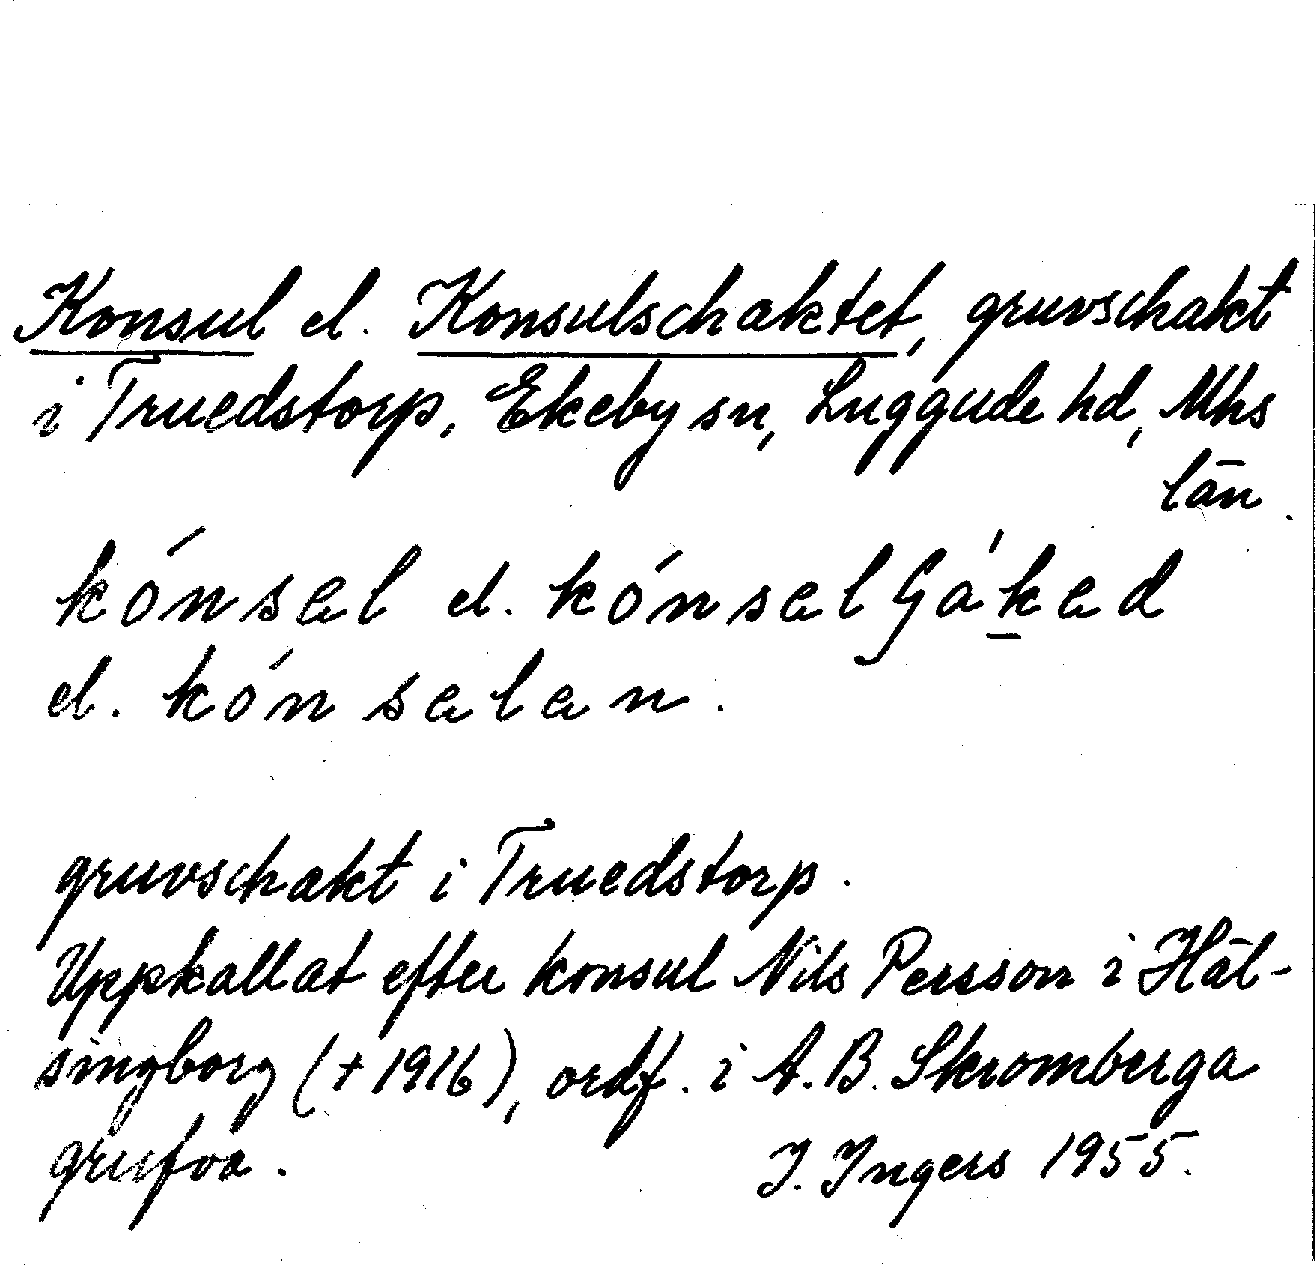 Konsul el. Konsulschaktet, gruvschakt
i Truedstorp, Ekeby sn, Luggude hd, Mhs
län.
kónsəl el. kónsəlʃák̠əd
el. kónsələn.
gruvschakt i Truedstorp.
Uppkallat efter konsul Nils Persson i Häl-
singborg (+ 1916), ordf. i A.B. Skromberga
grufva.
I. Ingers 1955.